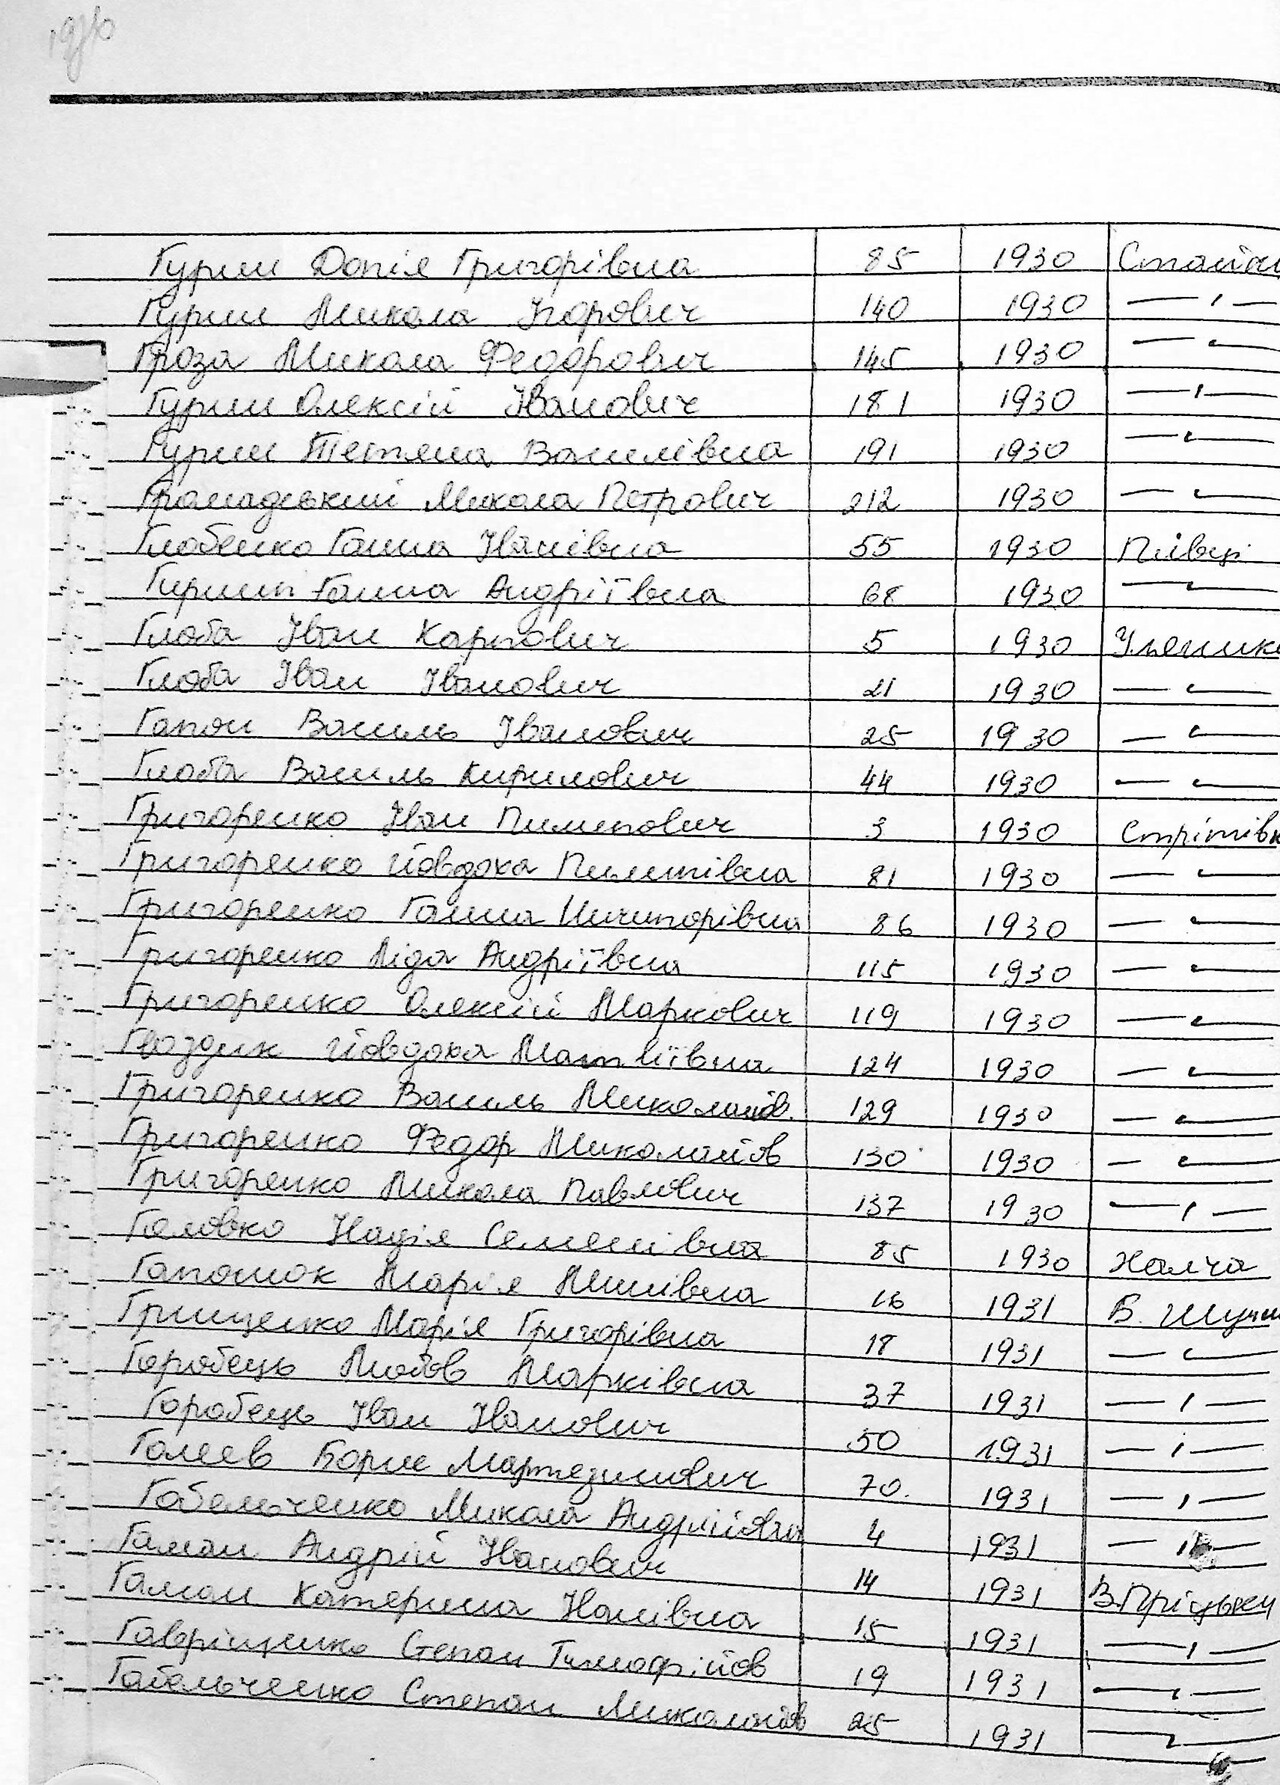 Гурин Допія Григорівна 85 1930 Стайки
Гурин Микола Ігорович 140 1930 — " —
Гроза Микола Федорович 145 1930 — " —
Гурин Олексій Іванович 181 1930 — " —
Гурин Тетяна Василівна 191 1930 — " —
Громадський Микола Петрович 212 1930 — " —
Глобенко Ганна Іванівна 55 1930 Півці
Ганна Андріївна 68 1930 — " —
Глоба Іван Карпович 5 1930
Глоба Іван Іванович 21 1930 — " —
Гапон Василь Іванович 25 1930 — " —
Глоба Василь Кирилович 44 1930 — " —
Григоренко Іван Пилипович 3 1930 Стрітівк
Григоренко Йовдоха Пилипівна 81 1930 — " —
Григоренко Ганна Ничипорівна 86 1930 — " —
Григоренко Ліда Андріївна 115 1930 — " —
Григоренко Олексій Маркович 119 1930 — " —
Гвоздик Йовдоха Матвіївна 124 1930 — " —
Григоренко Василь Миколайов. 129 1930 — " —
Григоренко Федор Миколайов 130 1930 — " —
Григоренко Микола Павлович 137 1930 — " —
Головко Надія Семенівна 85 1930 Халча
Гапонюк Марія 16 1931 Б. Шучин
Грищенко Марія Григорівна 18 1931 — " —
Горобець Любов Марківна 37 1931 — " —
Горобець Іван Іванович 50 1931 — " —
Голеев Борис 70. 1931 — " —
Габельченко Микола Андрійович 4 1931 — " —
Гаман Андрій Іванович 14 1931
Гаман Катерина Іванівна 15 1931 — " —
Гавріщенко Степан Тимофійов 19 1931 — " —
Габельченко Степан Миколайов 25 1931 — " —